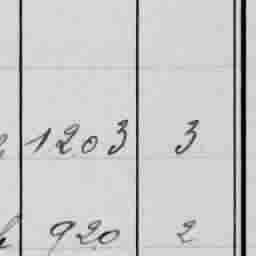 1203 3
920 2